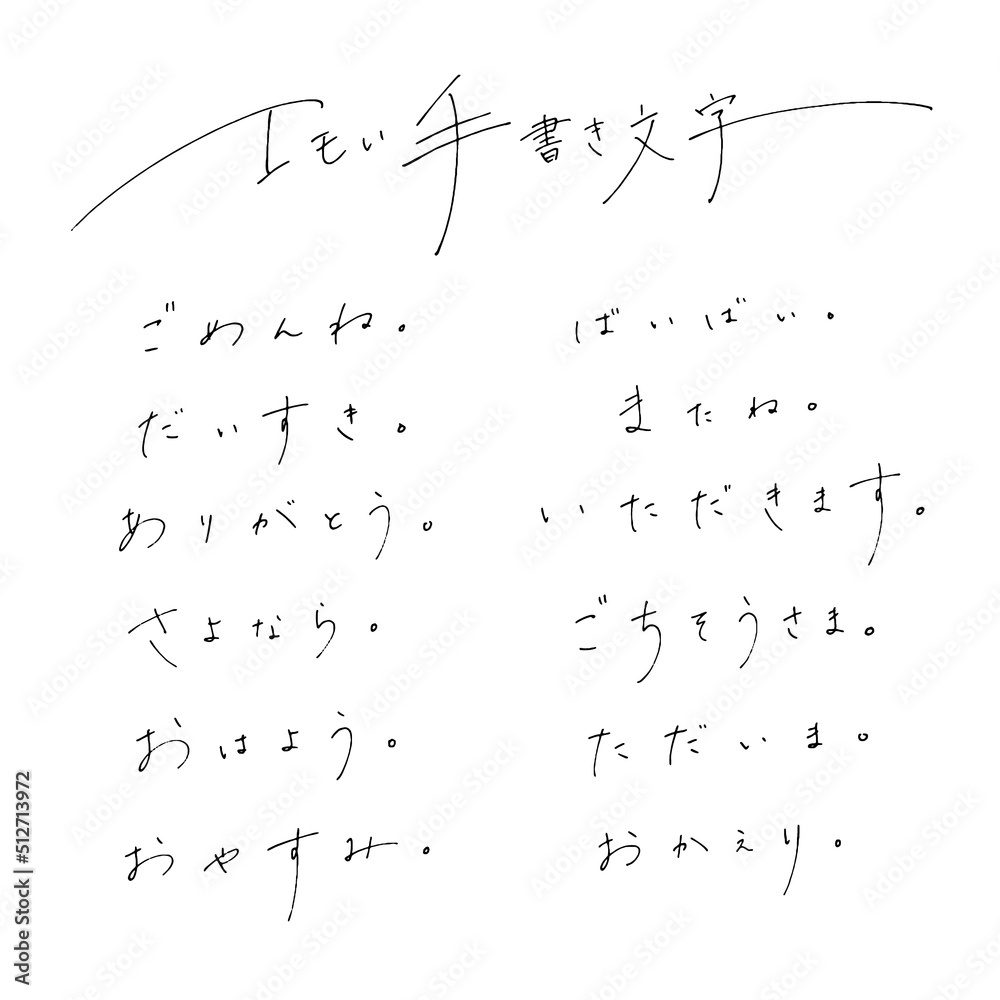 エモい手書き文字
ごめんね。
だいすき。
ありがとう。
さよなら。
おはよう。
おやすみ。
ばいばい。
またね。
いただきます。
ごちそうさま。
ただいま。
おかえり。
Adobe Stock | #512713972